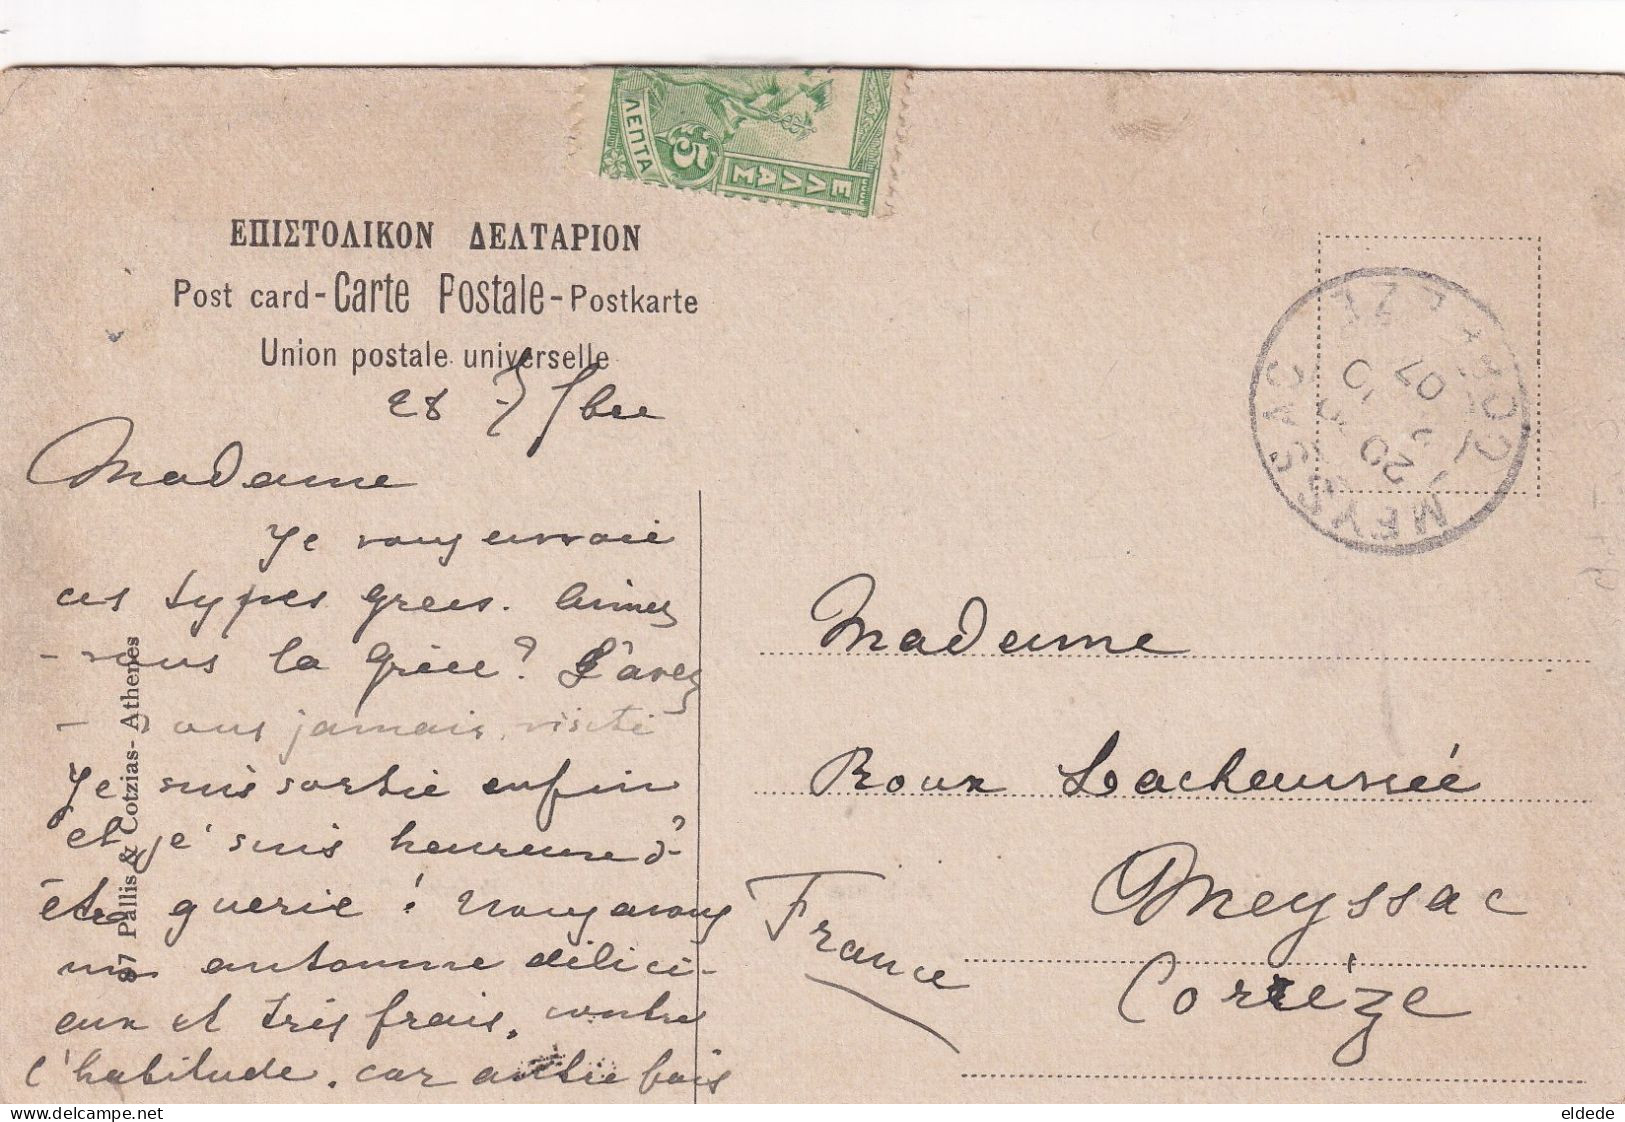 ΛΕΠΤΑ
5
ΕΛΛΑΣ
ΕΠΙΣΤΟΛΙΚΟΝ ΔΕΛΤΑΡΙΟΝ
Post card-Carte Postale-Postkarte
Union postale universelle
28 7bre
Madame
Je vous envoie
ces types grecs. Aimez
- vous la Grèce? L'avez
- vous jamais visité
Je suis sortie enfin
et je suis heureuse d'
être guerie! Nous avons
un automne délici-
eux et très frais, contre
l'habitude. car autre fois
87 Pallis & Cotzias- Athenes
MEYSSAC
CORREZE
20
10
07
Madame
Roux Lachaussée
Meyssac
Corrèze
France
www.delcampe.net
eldede